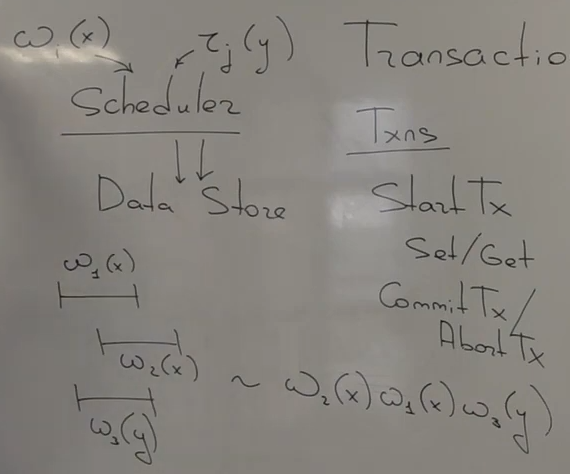 ω_i(x) τ_j(y)
Scheduler
Data Store
ω_1(x)
ω_2(x)
ω_3(y)
~ ω_2(x) ω_1(x) ω_3(y)
Transactio
Txns
Start Tx
Set/Get
Commit Tx/
Abort Tx